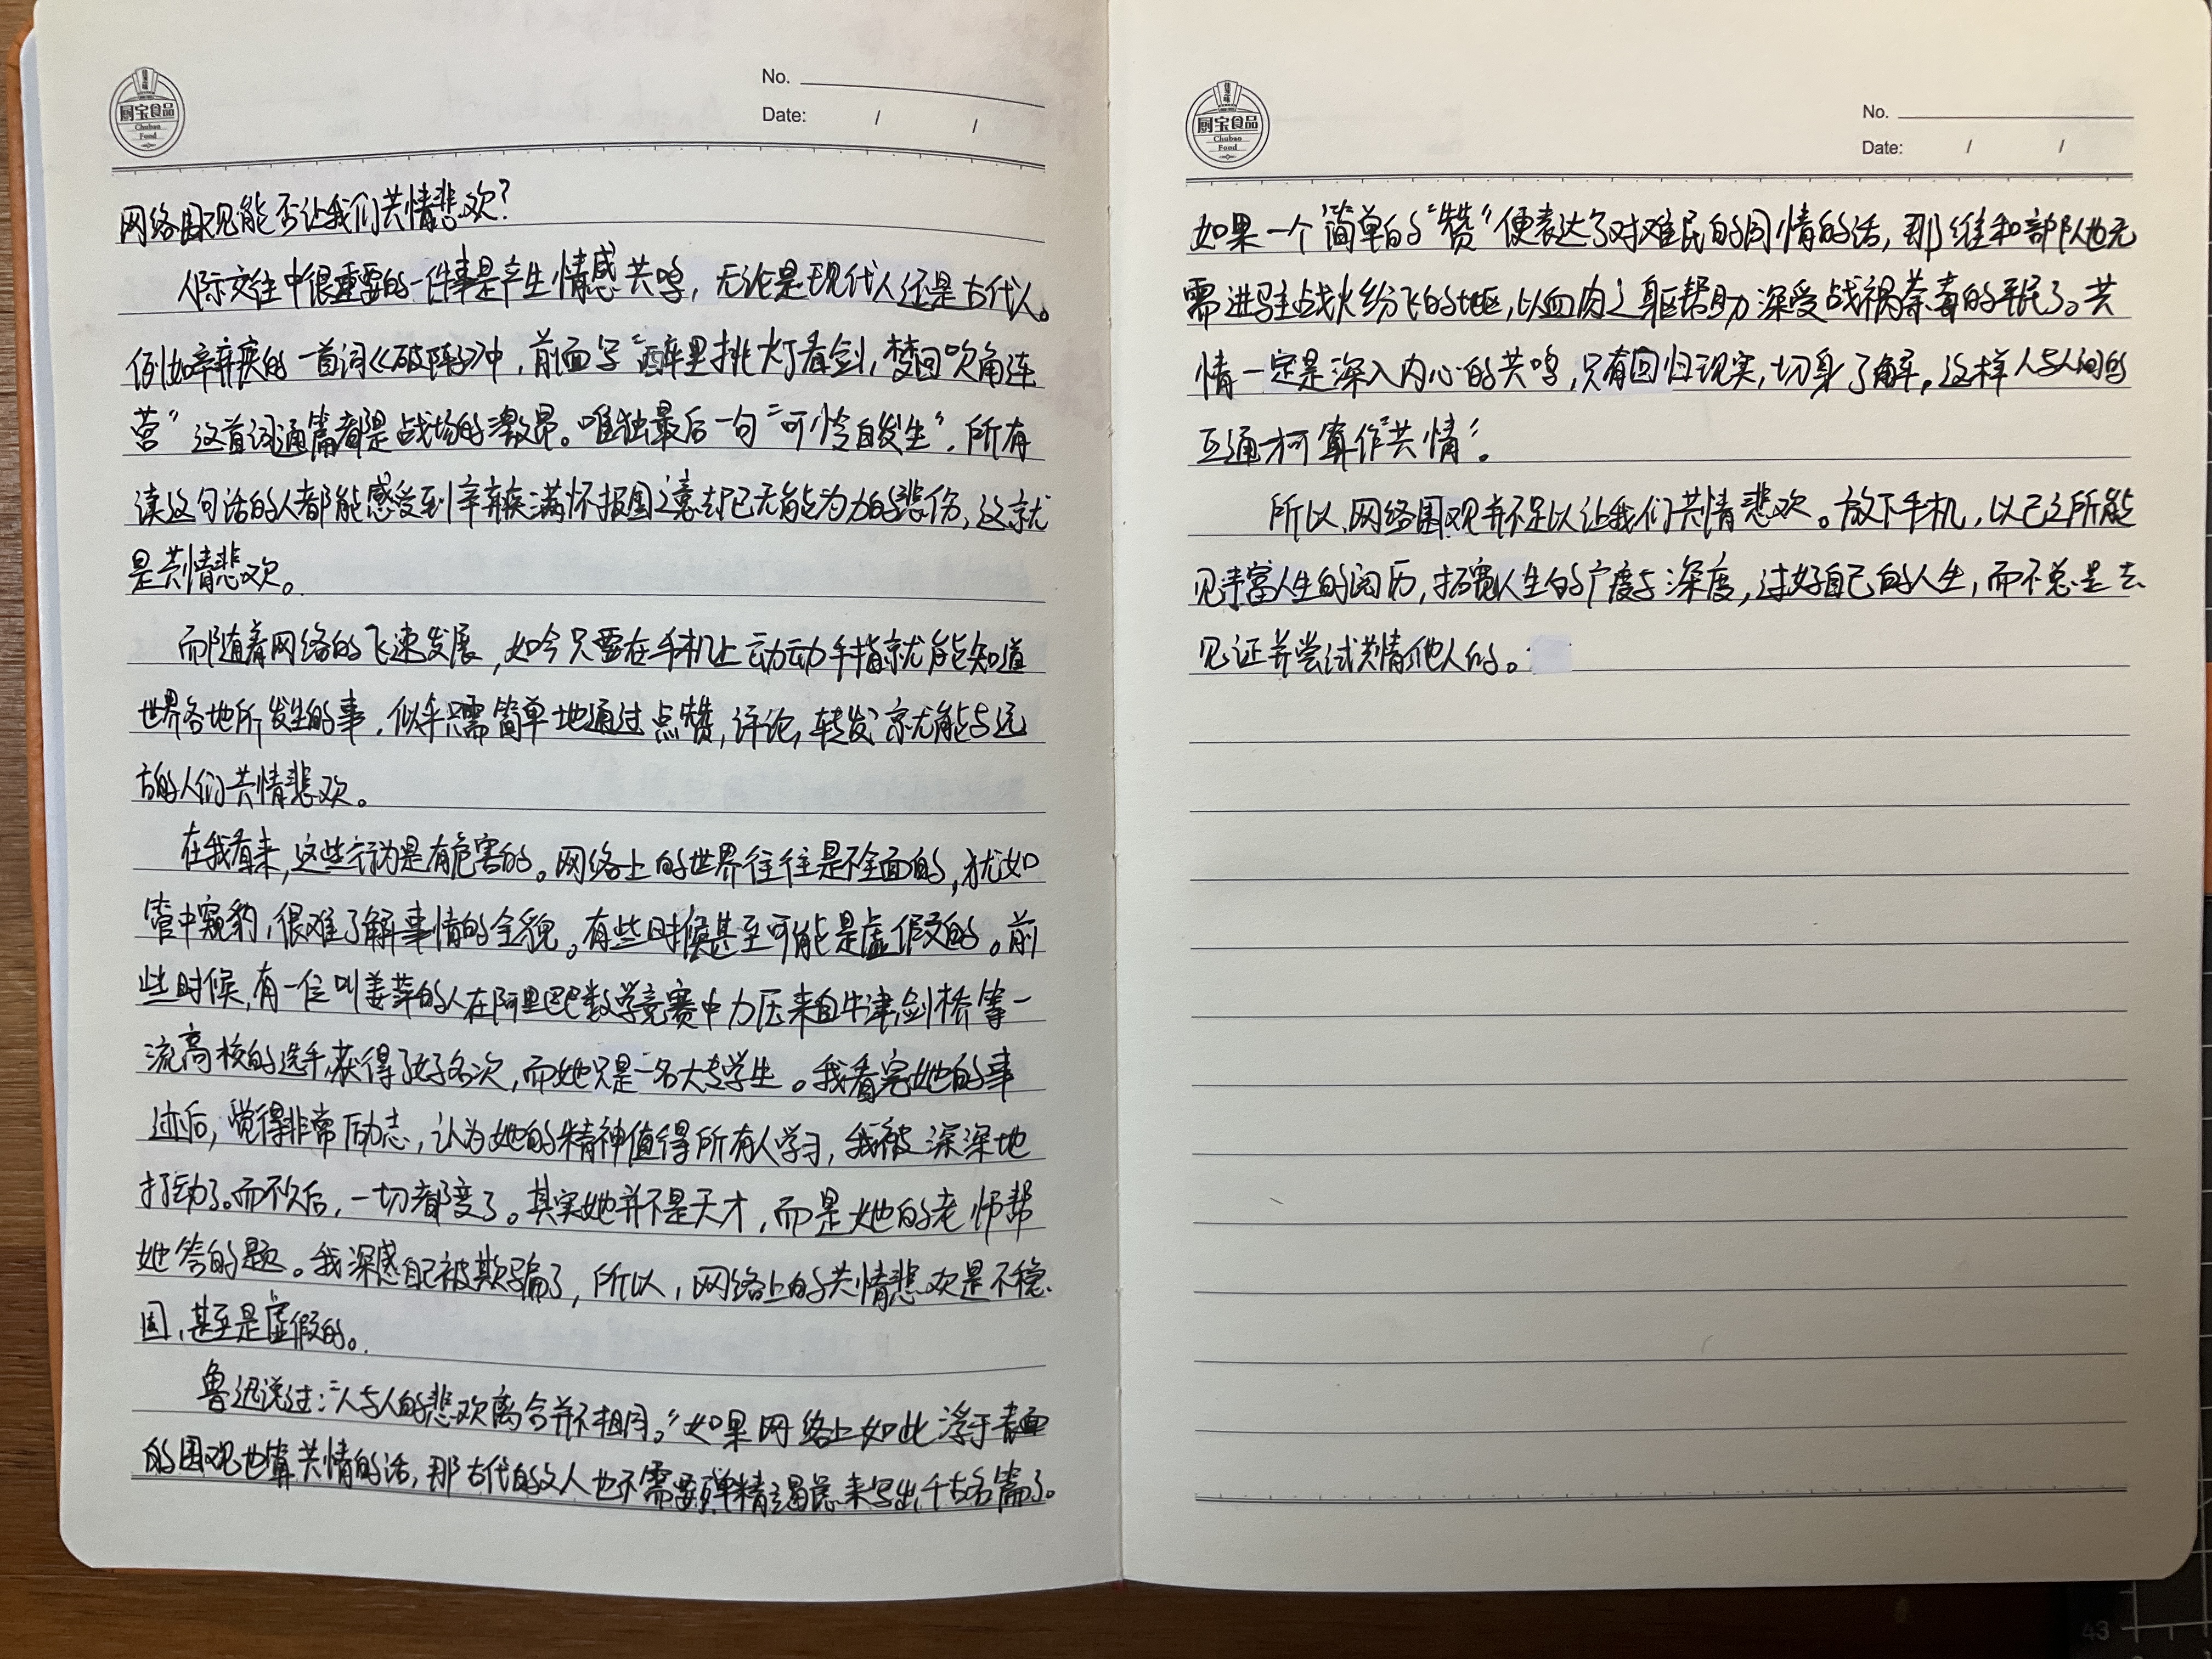 厨宝食品
Chubao
Food
No.
Date: / /
网络围观能否让我们共情悲欢?
人际交往中很重要的一件事是产生情感共鸣，无论是现代人还是古代人。
例如辛弃疾的一首词《破阵子》中，前面写“醉里挑灯看剑，梦回吹角连
营”这首词通篇都是战场的激昂。唯独最后一句“可怜白发生”，所有
读这句话的人都能感受到辛弃疾满怀报国之意却已无能为力的悲伤，这就
是共情悲欢。
而随着网络的飞速发展，如今只要在手机上动动手指就能知道
世界各地所发生的事，似乎只需简单地通过点赞，评论，转发就能与远
方的人们共情悲欢。
在我看来，这些行为是有危害的。网络上的世界往往是不全面的，犹如
管中窥豹，很难了解事情的全貌。有些时候甚至可能是虚假的。前
些时候，有一位叫姜萍的人在阿里巴巴数学竞赛中力压来自牛津剑桥等一
流高校的选手，获得了好名次，而她只是一名大专学生。我看完她的事
迹后，觉得非常励志，认为她的精神值得所有人学习，我被深深地
打动了。而不久后，一切都变了。其实她并不是天才，而是她的老师帮
她答的题。我深感自己被欺骗了，所以，网络上的共情悲欢是不稳
固，甚至是虚假的。
鲁迅说过：“人与人的悲欢离合并不相同。”如果网络上如此浮于表面
的围观也算共情的话，那古代的文人也不需要殚精竭虑来写出千古名篇了。
厨宝食品
Chubao
Food
No.
Date: / /
如果一个简单的“赞”便表达了对难民的同情的话，那维和部队也无
需进驻战火纷飞的地区，以血肉之躯帮助深受战祸荼毒的平民了。共
情一定是深入内心的共鸣，只有回归现实，切身了解，这样人与人间的
互通才可算作“共情”。
所以，网络围观并不足以让我们共情悲欢。放下手机，以己之所能
见丰富人生的阅历，拓宽人生的广度与深度，过好自己的人生，而不总是去
见证并尝试共情他人的。
43